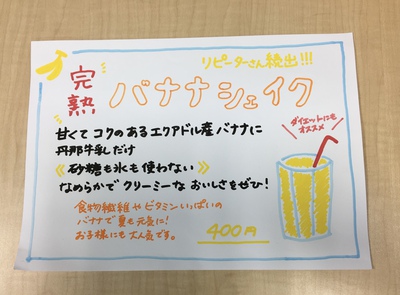 リピーターさん続出!!!
完熟
バナナシェイク
甘くて コクのある エクアドル産 バナナに
丹那牛乳だけ
《砂糖も氷も使わない》
なめらかで クリーミーな おいしさをぜひ!
ダイエットにも
オススメ
食物繊維や ビタミンいっぱいの
バナナで 夏も元気に!
お子様にも 大人気です。
400円